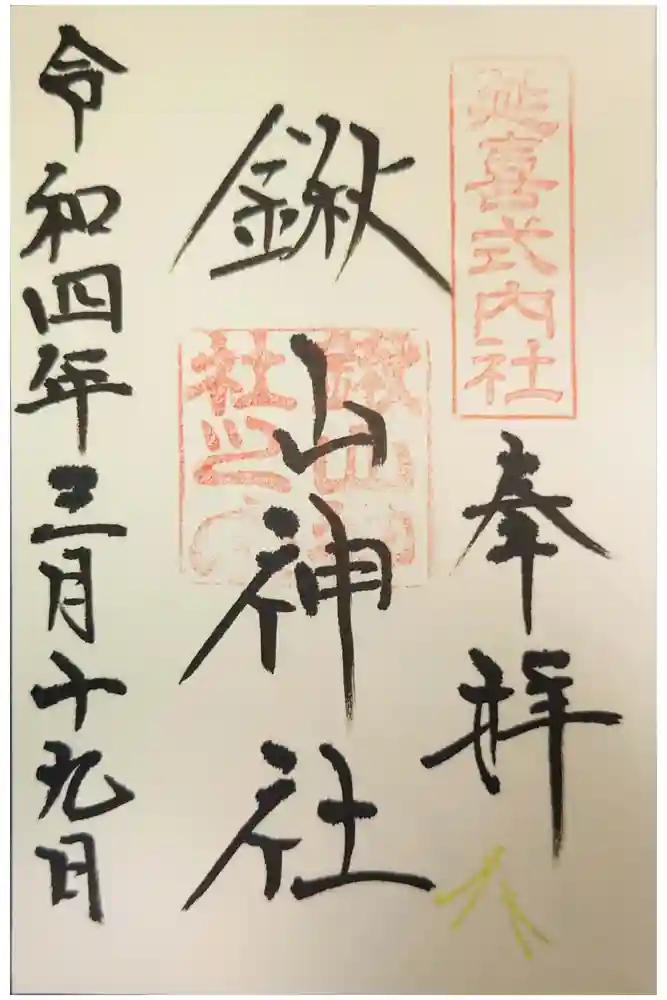 延喜式内社
奉拝
鍬山神社
鍬山神
社之印
令和四年三月十九日